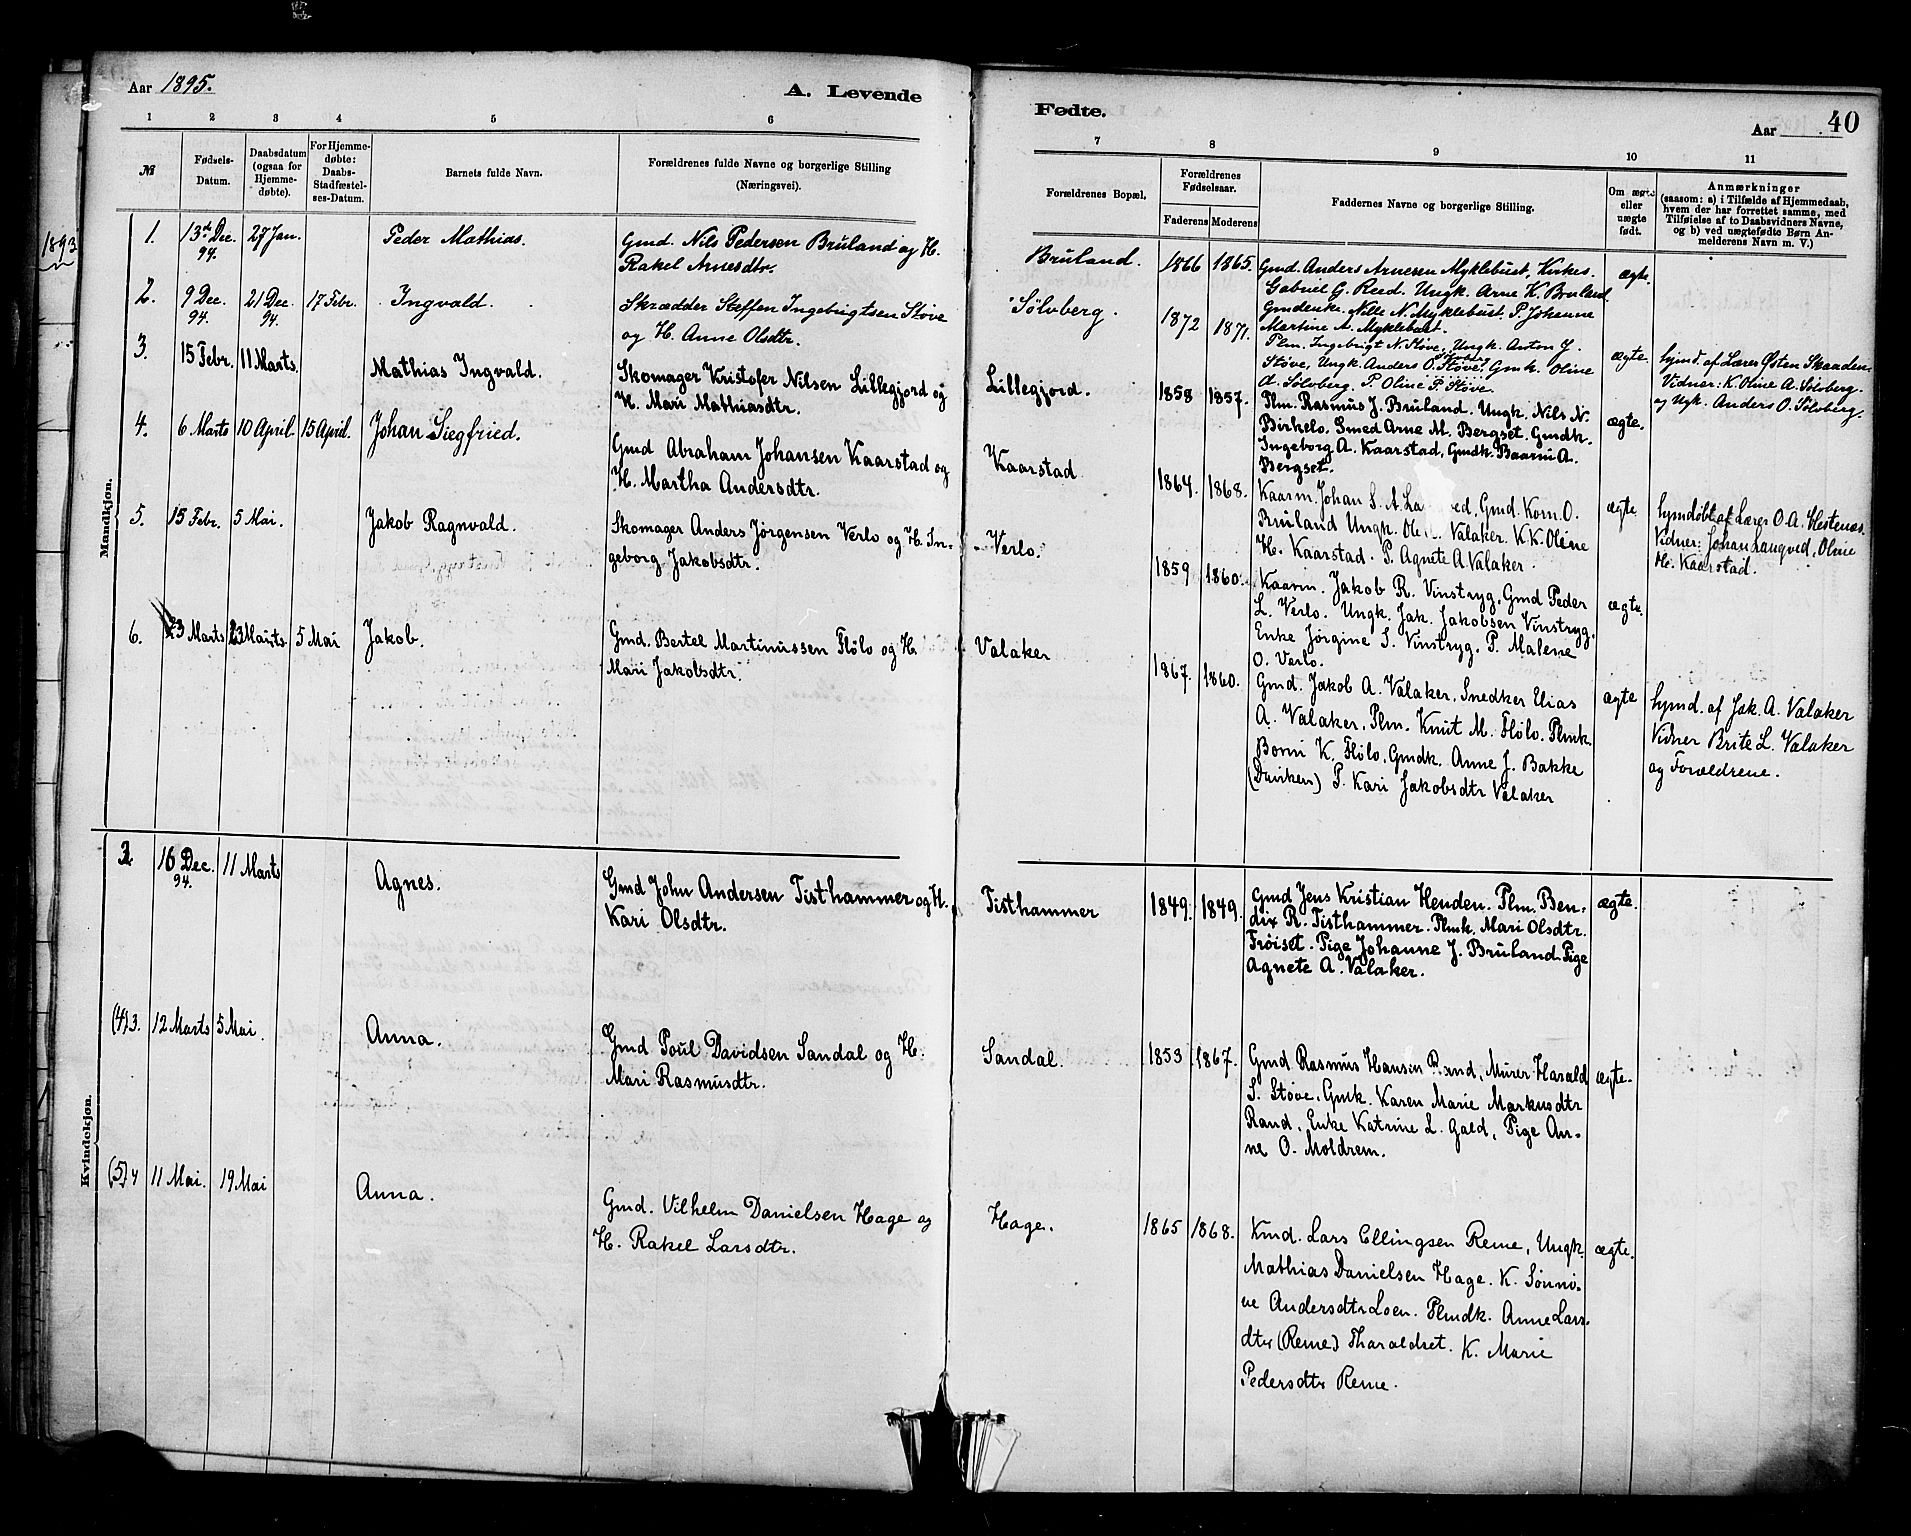 Aar 1895.
A. Levende
Fødte.
Aar
40
1893
1 2 3 4 5 6
7 8 9 10 11
№
Fødsels-
Datum.
Daabsdatum
(ogsaa for
Hjemme-
døbte).
For Hjemme-
døbte:
Daabs-
Stadfæstel-
ses-Datum.
Barnets fulde Navn.
Forældrenes fulde Navne og borgerlige Stilling
(Næringsvei).
Forældrenes Bopæl.
Forældrenes
Fødselsaar.
Faderens
Moderens
Faddernes Navne og borgerlige Stilling.
Om ægte
eller
uægte
født.
Anmærkninger
(saasom: a) i Tilfælde af Hjemmedaab,
hvem der har forrettet samme, med
Tilføielse af to Daabsvidners Navne,
og b) ved uægtefødte Børn An-
melderens Navn m. V.)
Mandkjøn.
1. 13de Dec. 94. 27 Jan. Peder Mathias.
Gmd. Nils Pedersen Bruland og H.
Rakel Arnesdtr.
Bruland. 1866 1865.
Gmd. Anders Arnesen Myklebust, Kirkes.
Gabriel G. Reed. Ungk. Arne K. Bruland.
Gmdenke. Nille N. Myklebust. P. Johanne
Martine A. Myklebust.
ægte.
2. 9 Dec. 94. 21 Dec. 94. 17 Febr. Ingvald.
Skrædder Steffen Ingebrigtsen Støve
og H. Anne Olsdtr.
Sølvberg. 1872 1871.
Plm. Ingebrigt N. Støve, Ungk. Anton J.
Støve, Ungk. Anders O. Støve, Gmk. Oline
A. Sølvberg. P. Oline P. Støve.
ægte.
hjmd. af Lærer Østen Skaaden.
Vidner: K. Oline A. Sølvberg.
og Ugk. Anders O. Sølvberg.
3. 15 Febr. 11 Marts. Mathias Ingvald.
Skomager Kristofer Nilsen Lillegjord og
H. Mari Mathiasdtr.
Lillegjord. 1858 1857.
Plm. Rasmus J. Bruland. Ungk. Nils N.
Birkelo. Smed Arne M. Bergset. Gmdk.
Ingeborg A. Kaarstad, Gmdk. Baarni A.
Bergset.
ægte.
4. 6 Marts 10 April. 15 April. Johan Siegfried.
Gmd Abraham Johansen Kaarstad og
H. Martha Andersdtr.
Kaarstad 1864. 1868.
Kaarm. Johan S. A. La ved, Gmd. Korn. O.
Bruland Ungk. Valaker. K.K. Oline
H. Kaarstad. P. Agnete A. Valaker.
ægte
hjmdøbt af Lærer O. A. Hestenæs.
Vidner: Johan Langved, Oline
H. Kaarstad.
5. 15 Febr. 5 Mai. Jakob Ragnvald.
Skomager Anders Jørgensen Verlo og H. In-
geborg Jakobsdtr.
Verlo. 1859 1860.
Kaarm. Jakob R. Vinstryg, Gmd Peder
L. Verlo. Ungk. Jak. Jakobsen Vinstryg.
Enke Jørgine S. Vinstryg. P. Malene
O. Verlo.
ægte.
6. 23 Marts 23 Marts 5 Mai Jakob.
Gmd. Bertel Martinussen Flølo og H.
Mari Jakobsdtr.
Valaker 1867. 1860.
Gmd. Jakob A. Valaker, Snedker Elias
A. Valaker, Plm. Knut M. Flølo. Plmk.
Borni K. Flølo, Gmdk. Anne J. Bakke
(Dvirken) P. Kari Jakobsdtr Valaker
ægte
hjmd. af Jak. A. Valaker
Vidner Brite L. Valaker
og Forældrene.
Kvindekjøn.
2 16 Dec. 94. 11 Marts Agnes.
Gmd John Andersen Tisthammer og H.
Kari Olsdtr.
Tisthammer 1849. 1849.
Gmd Jens Kristian Henden. Plm. Ben-
dix R. Tisthammer. Plmk. Mari Olsdtr.
Frøiset. Pige Johanne J. Bruland. Pige
Agnete A. Valaker.
ægte.
(4) 3. 12 Marts 5 Mai. Anna.
Gmd Poul Davidsen Sandal og H.
Mari Rasmusdtr.
Sandal. 1853 1867.
Gmd Rasmus Hansen Rand, Murer Harald
S. Støve, Gmk. Karen Marie Markusdtr
Rand, Enke Katrine L. Gald, Pige An-
ne O. Moldrem.
ægte.
(5) 4 11 Mai. 19 Mai Anna.
Gmd. Vilhelm Danielsen Hage og
H. Rakel Larsdtr.
Hage. 1865 1868.
Kmd. Lars Ellingsen Reme, Ungk.
Mathias Danielsen Hage. K. Sønni-
ve Andersdtr Loen. Plmdk. Anne Lars-
dtr (Reme) Tharaldset. K. Marie
Pedersdtr Reme.
ægte.